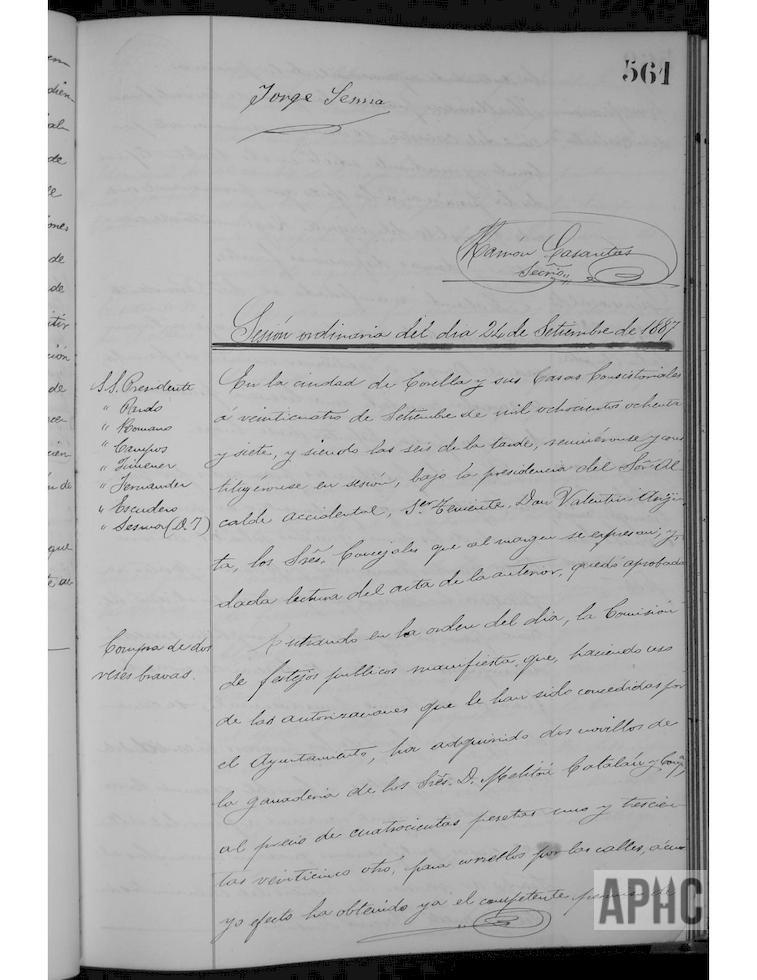 561
Jorge Sesma
Ramón Casantas
Secrio
Sesión ordinaria del dia 24 de Setiembre de 1887
S.S. Presidente
" Pardo
" Romano
" Campos
" Jimener
" Fernander
" Escudero
" Sesma (D. J)
En la ciudad de Corella y sus Casas Consistoriales
á veinticuatro de Setiembre de mil ochocientos ochenta
y siete, y siendo las seis de la tarde, reuniéronse y cons
tituyéronse en sesión, bajo la presidencia del Sor. Al
calde accidental, 1er Teniente, Don Valentin
ta, los Sres. Concejales que al margen se expresan, y
dada lectura del acta de la anterior, quedó aprobada
Compra de dos
reses bravas.
Entrando en la orden del dia, la Comisión
de festejos publicos manifiesta que, haciendo uso
de las autorizaciones que le han sido concedidas por
el Ayuntamiento, ha adquirido dos novillos de
la ganaderia de los Sres. D. Melitón Catalán y Compa,
al precio de cuatrocientas pesetas uno y trescien
tas veinticinco otro, para correllos por las calles, á cu
yo efecto ha obtenido ya el competente permiso de
APHC